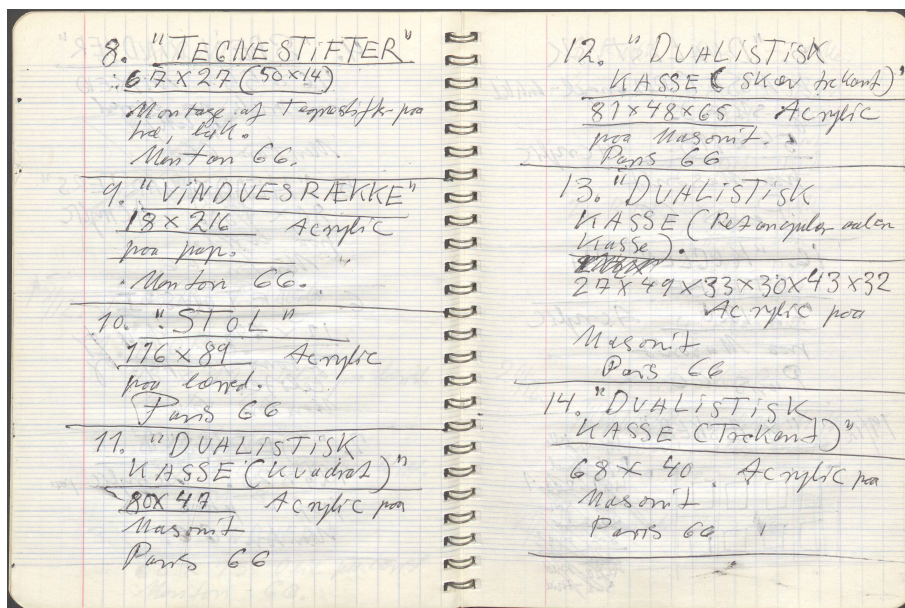 8. "TEGNESTIFTER"
67 X 27 (50 X 14)
Montage af Tegnestifter paa
træ, lak.
Menton 66.
9. "VINDUESRÆKKE"
18 X 216 Acrylic
paa pap.
Menton 66.
10. "STOL"
116 X 89 Acrylic
paa lærred.
Paris 66
11. "DUALISTISK
KASSE (Kvadrat)"
80X47 Acrylic paa
Masonit
Paris 66
12. "DUALISTISK
KASSE (Skæv trekant)"
81 X 48 X 65 Acrylic
paa Masonit.
Paris 66
13. "DUALISTISK
KASSE (Retangulær
Kasse).
27 X 49 X 33 X 30 X 43 X 32
Acrylic paa
Masonit
Paris 66
14. "DUALISTISK
KASSE (Trekant)"
68 X 40. Acrylic paa
Masonit
Paris 66